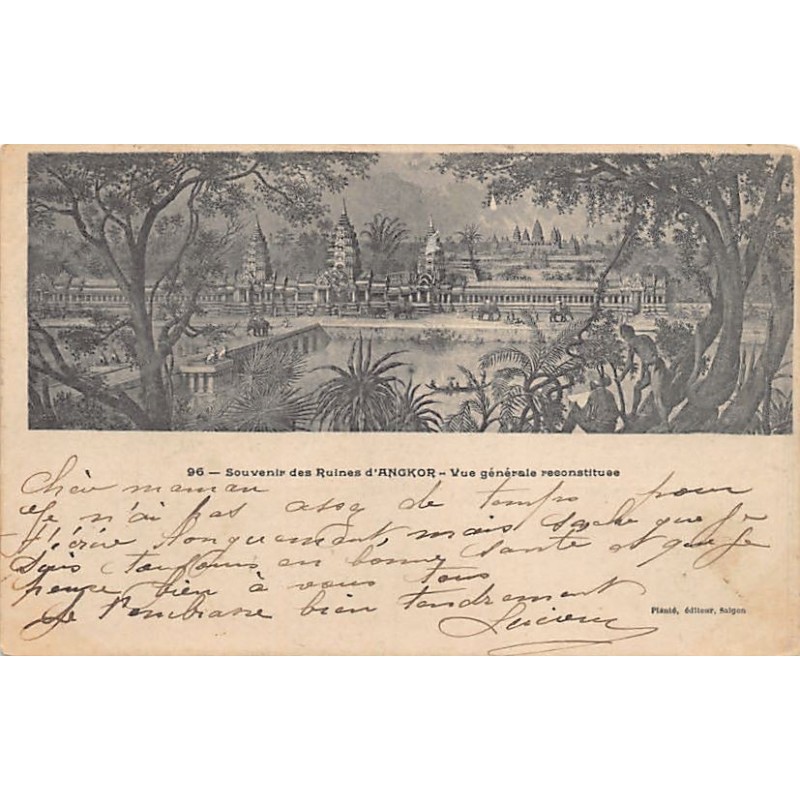 96 — Souvenir des Ruines d'ANGKOR - Vue générale reconstituee
Chère maman
Je n'ai pas assez de temps pour
t'écrire longuement, mais sache que je
suis toujours en bonne santé et que je
pense bien à vous tous
Je t'embrasse bien tendrement
Lucien
Planté, éditeur, Saigon